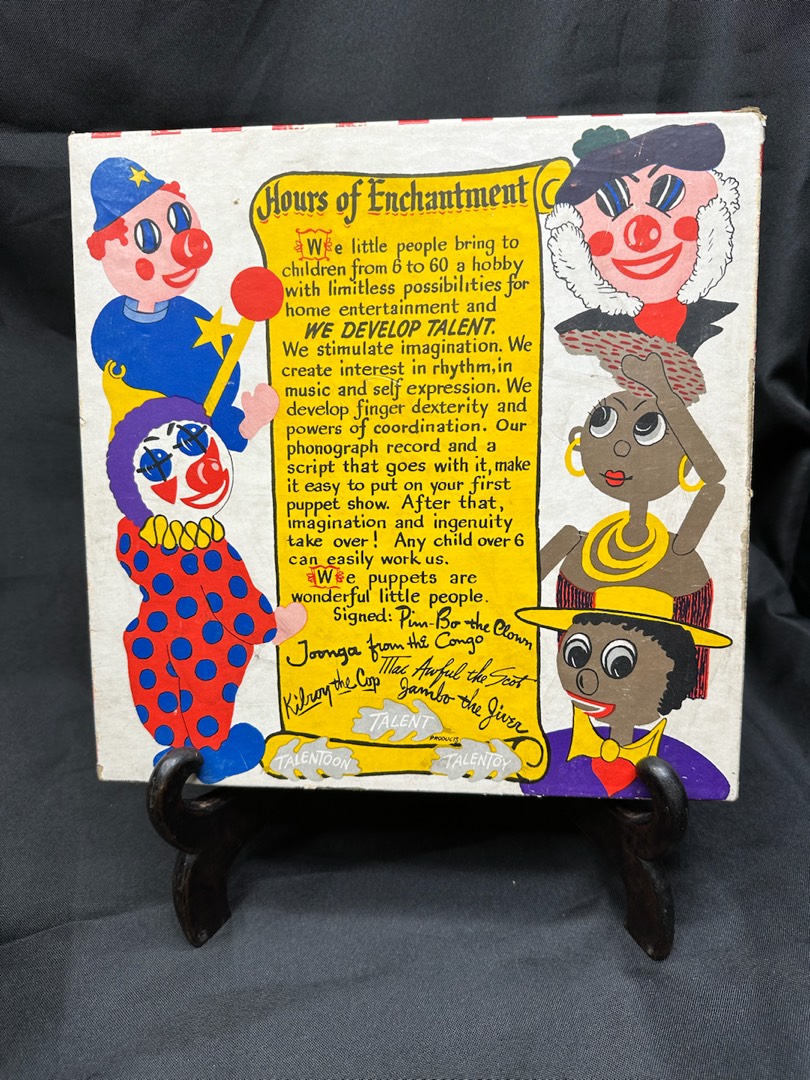 Hours of Enchantment
We little people bring to
children from 6 to 60 a hobby
with limitless possibilities for
home entertainment and
WE DEVELOP TALENT.
We stimulate imagination. We
create interest in rhythm, in
music and self expression. We
develop finger dexterity and
powers of coordination. Our
phonograph record and a
script that goes with it, make
it easy to put on your first
puppet show. After that,
imagination and ingenuity
take over! Any child over 6
can easily work us.
We puppets are
wonderful little people.
Signed: Pim-Bo the Clown
Joonga from the Congo
Mac Awful the Scot
Kilroy the Cop
Jambo the Jiver
TALENT
PRODUCTS
TALENTOON
TALENTOY